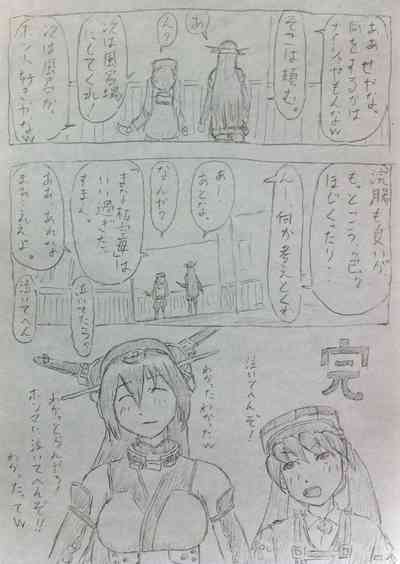 まあせやな、
何をするかは
ナイショやもんなw
そこは頼む。
あ
ん?
次は風呂場
にしてくれ!
次は風呂か、
ホント好きやなw
も良いが
もっとこう、色々
ほじくったり…
ん 何か考えとくわ
あ
あとな、
なんだ?
「まな板空母」は
いい過ぎた、
すまん。
泣いてたろ?
ああ あれな
まあ ええよ。
泣いてへん
完
泣いてへんぞ!
わかったわかったw
わかっとらんやろ!
ホンマに泣いてへんぞ!!
わかったってw